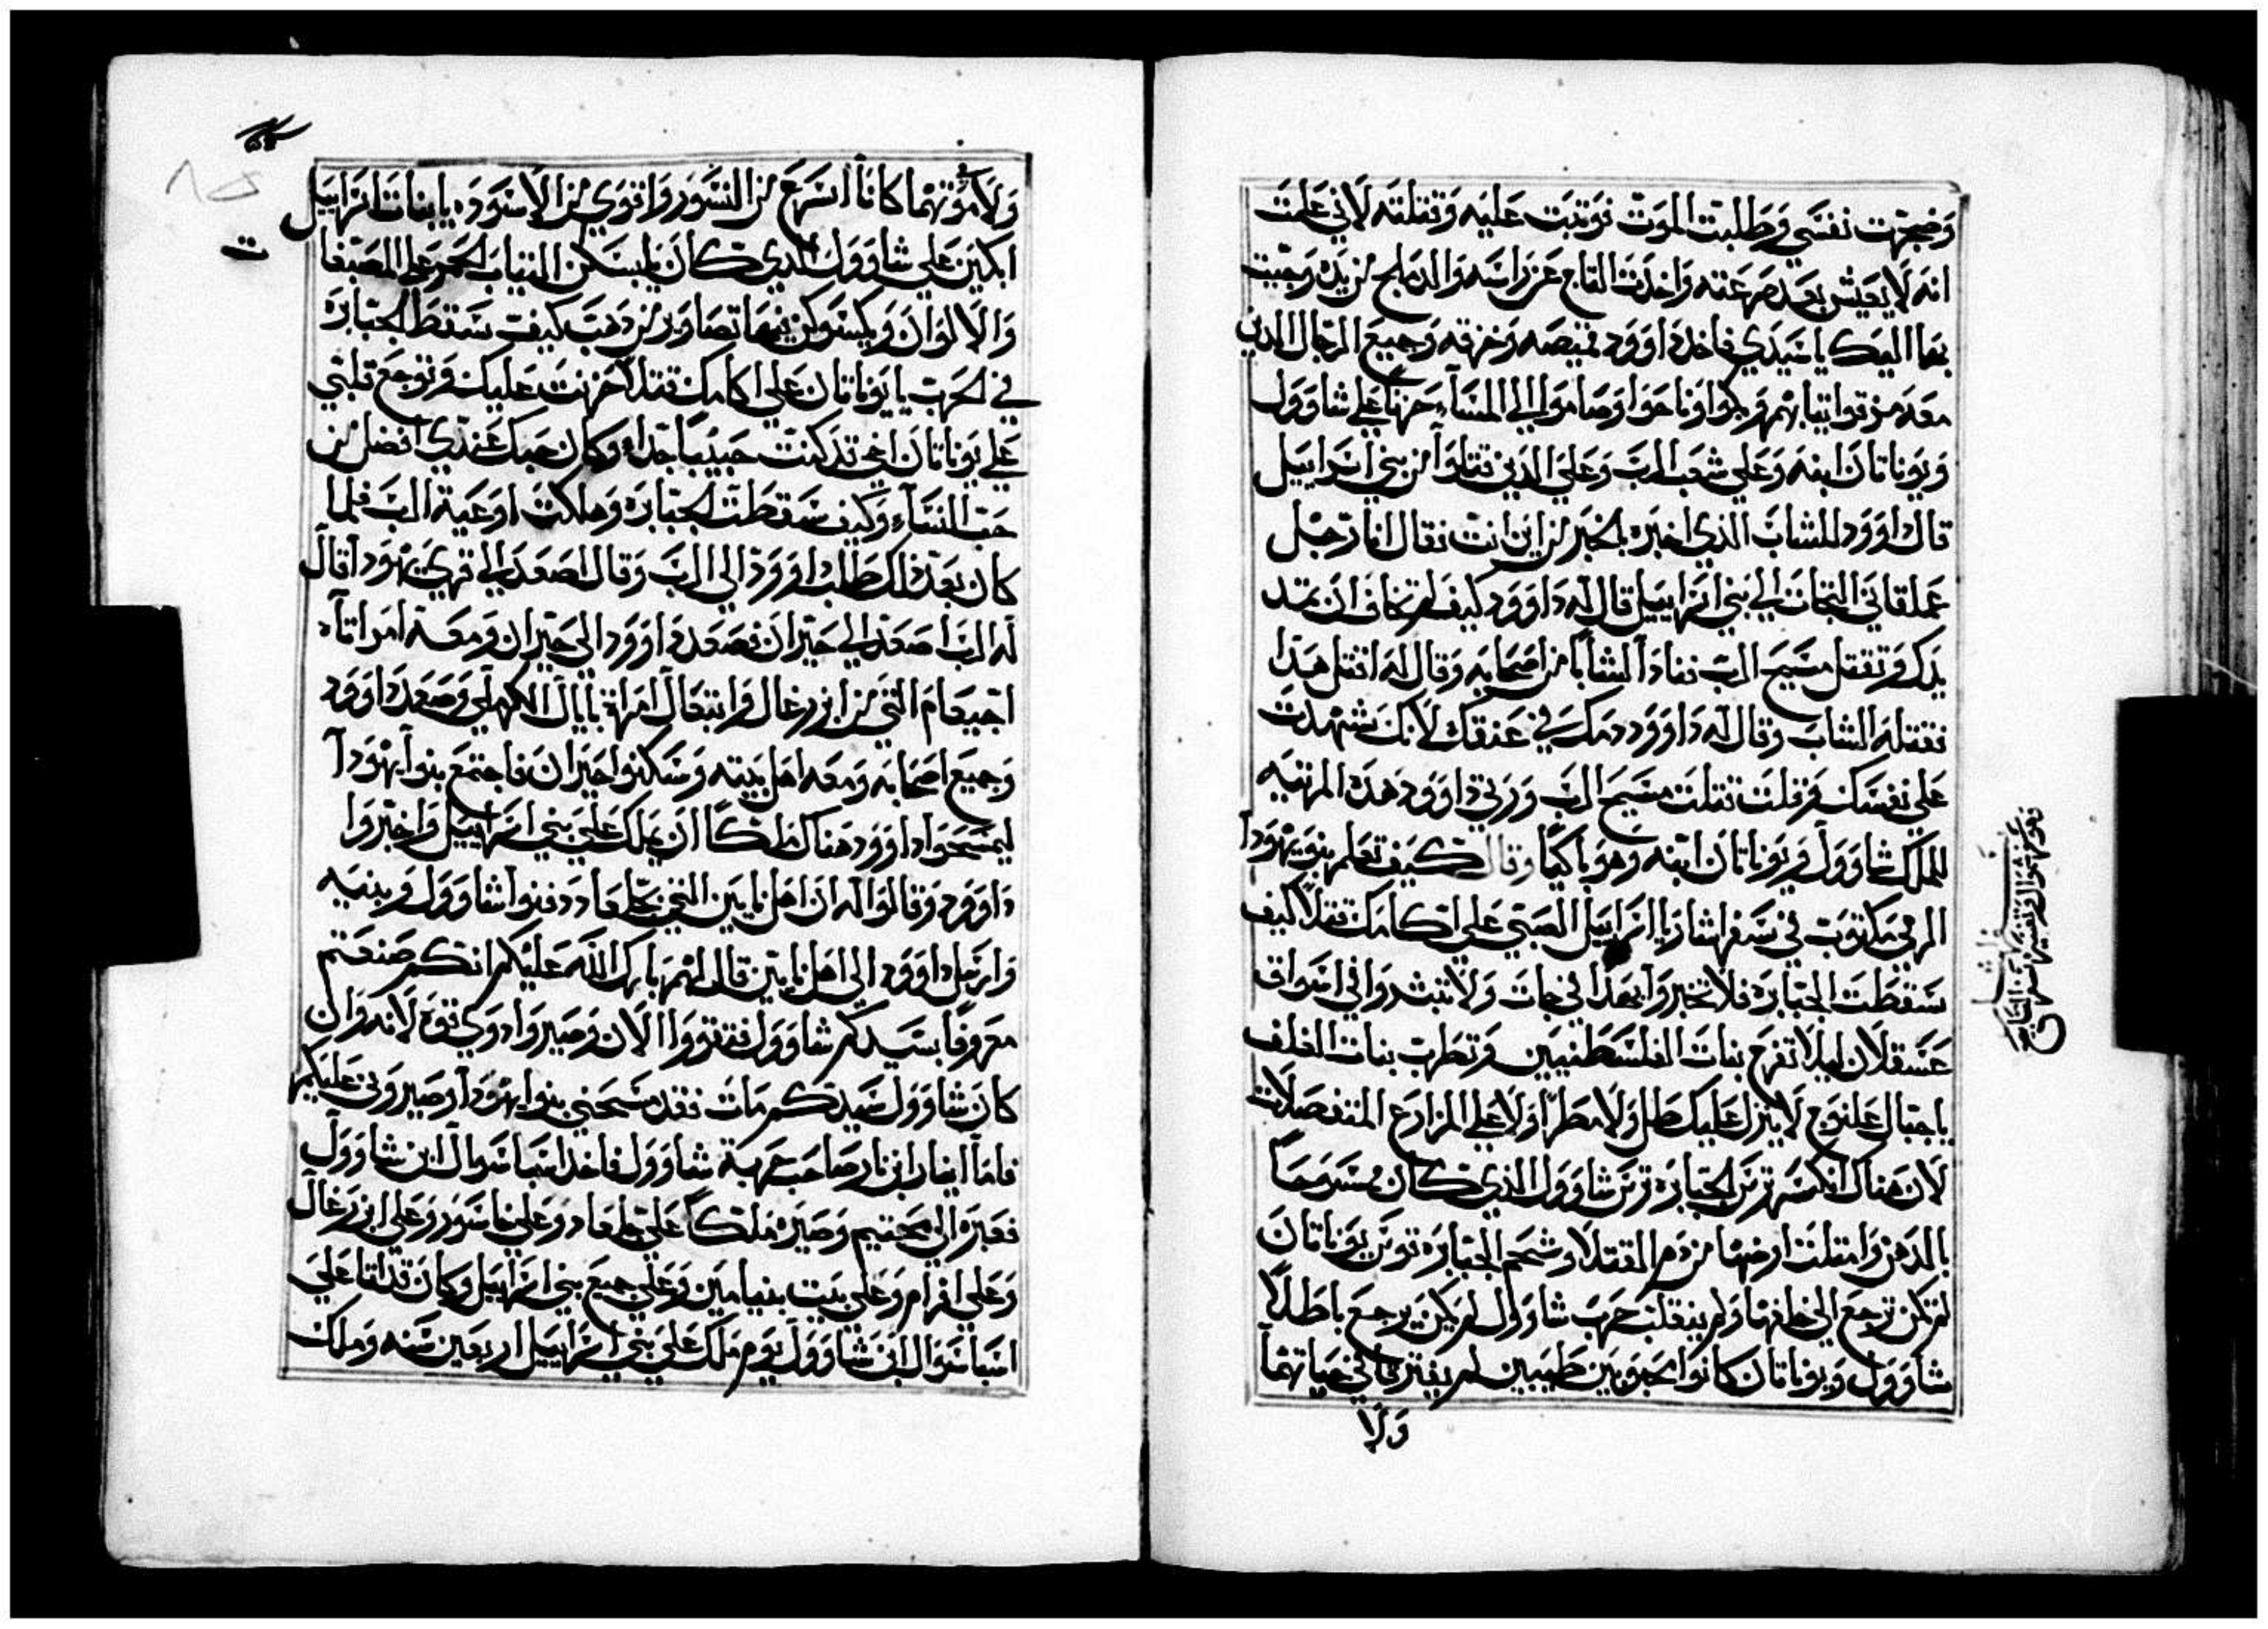 وضجرت نفسي وطلبت الموت فوتبت عليه وقتلته لاني علمت
انه لا يعيش بعد صرعته واخدت التاج عن راسه والدملج من يده وجيت
بهما اليك يا سيدي فاخد داوود قميصه وخرقه وجميع الرجال الدين
معه مزقوا تيابهم وبكوا وناحوا وصاموا الي المسآء حزنا علي شاوول
ويوناتان ابنه وعلي شعب الرب وعلي الدين قتلوا من بني اسراييل
قال داوود للشاب الدي اخبره بالخبر من اين انت فقال انا رجل
عملقاني التجات الي بني اسراييل قال له داوود كيف لم تخاف ان تمد
يدك وتقتل مسيح الرب فنادا الشابا من اصحابه وقال له اقتل هدا
فقتله الشاب وقال له داوود دمك في عنقك لانك شهدت
علي نفسك وقلت قتلت مسيح الرب ورتي داوود هده المرتيه
للملك شاوول ويوناتان ابنه وهو باكيًا وقال كيف تعلم بنو يهودا
الرمي مكتوب في سفر اشار يا اسراييل الصبي علي اكامك قتلا كيف
سقطت الجبابره فلا تخبروا بهدا في جات ولا تبشروا في اسواق
عسقلان ليلا تفرح بنات الفلسطنيين وتطرب بنات الغلف
يا جبال علنوع لا ينزل عليك طل ولا مطرًا ولا علي المزارع المتفصلات
لان هناك انكسر ترس الجبابره ترس شاوول الدي كان مسوحًا
بالدهن وامتلت ارضها من دم القتلا وشحم الجبابره قوس يوناتان
لم تكن ترجع الي خلفها ولم ينقلب حرب شاوول لم يكن يرجع باطلاً
شاوول ويوناتان كانوا محبوبين طيبين لم يفترقا في حياتهما
ولا
ولا موتهما كانا اسرع من النسور واقوي من الاسود يا بنات اسراييل
ابكين علي شاوول الدي كان يلبسكن التياب الحمر والمصبغا
والالوان ويكسوكن فيها تصاوير من دهب كيف سقط الجبابره
في الحرب يا يوناتان علي اكامك قتلا حزنت عليك وتوجع قلبي
علي يوناتان اخي قد كنت حبيبًا جدا وكان حبك عندي افضل من
حب النسآء وكيف سقطت الجبابره وهلكت اوعية الرب فلما
كان بعد دلك طلب داوود الي الرب وقال اصعد الي قري يهودا قال
له الرب اصعد الي حبران فصعد داوود الي حبران ومعه امراتاه
احيعام التي من ازرعال وابيغال امراة نابال الكرملي وصعد داوود
وجميع اصحابه ومعه اهل بيته وسكنوا حبران فاجتمع بنوا يهودا
ليمسحوا داوود هناك ملكًا ان يملك علي بني اسراييل واخبروا
داوود وقالوا له ان اهل نابين التي بجلعاد دفنوا شاوول وبنيه
وارسل داوود الي اهل نابين قال لهم بارك الله عليكم انكم صنعتم
معروفًا بسيدكم شاوول فتقووا الان وصيروا دوي قوة لانه وان
كان شاوول سيدكم مات فقد مسحني بنوا يهودا وصيروني عليكم
فاما ابنار ابن نار صاحب حربة شاوول فاخد اسباسوال ابن شاوول
فعبره الي محنيم وصيره ملكًا علي جلعاد وعلي جاسور وعلي ازرعال
وعلي افرام وعلي بيت بنيامين وعلي جميع بني اسراييل وكان قد اتا علي
اسباسوال ابن شاوول يوم ملك علي بني اسراييل اربعين سنه وملك